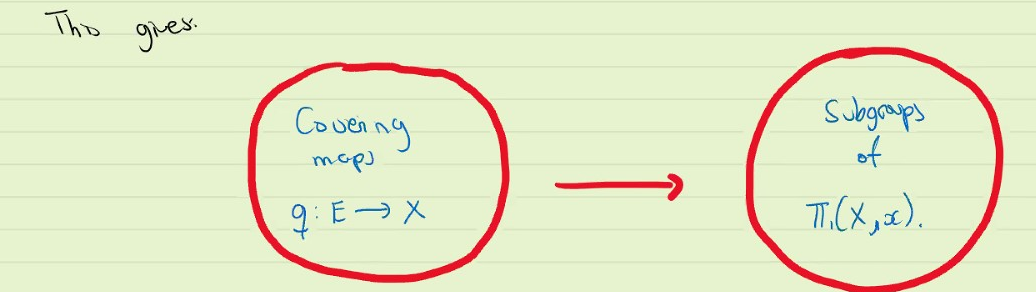 This gives.
Covering
maps
q: E → X
Subgroups
of
π₁(X, x).